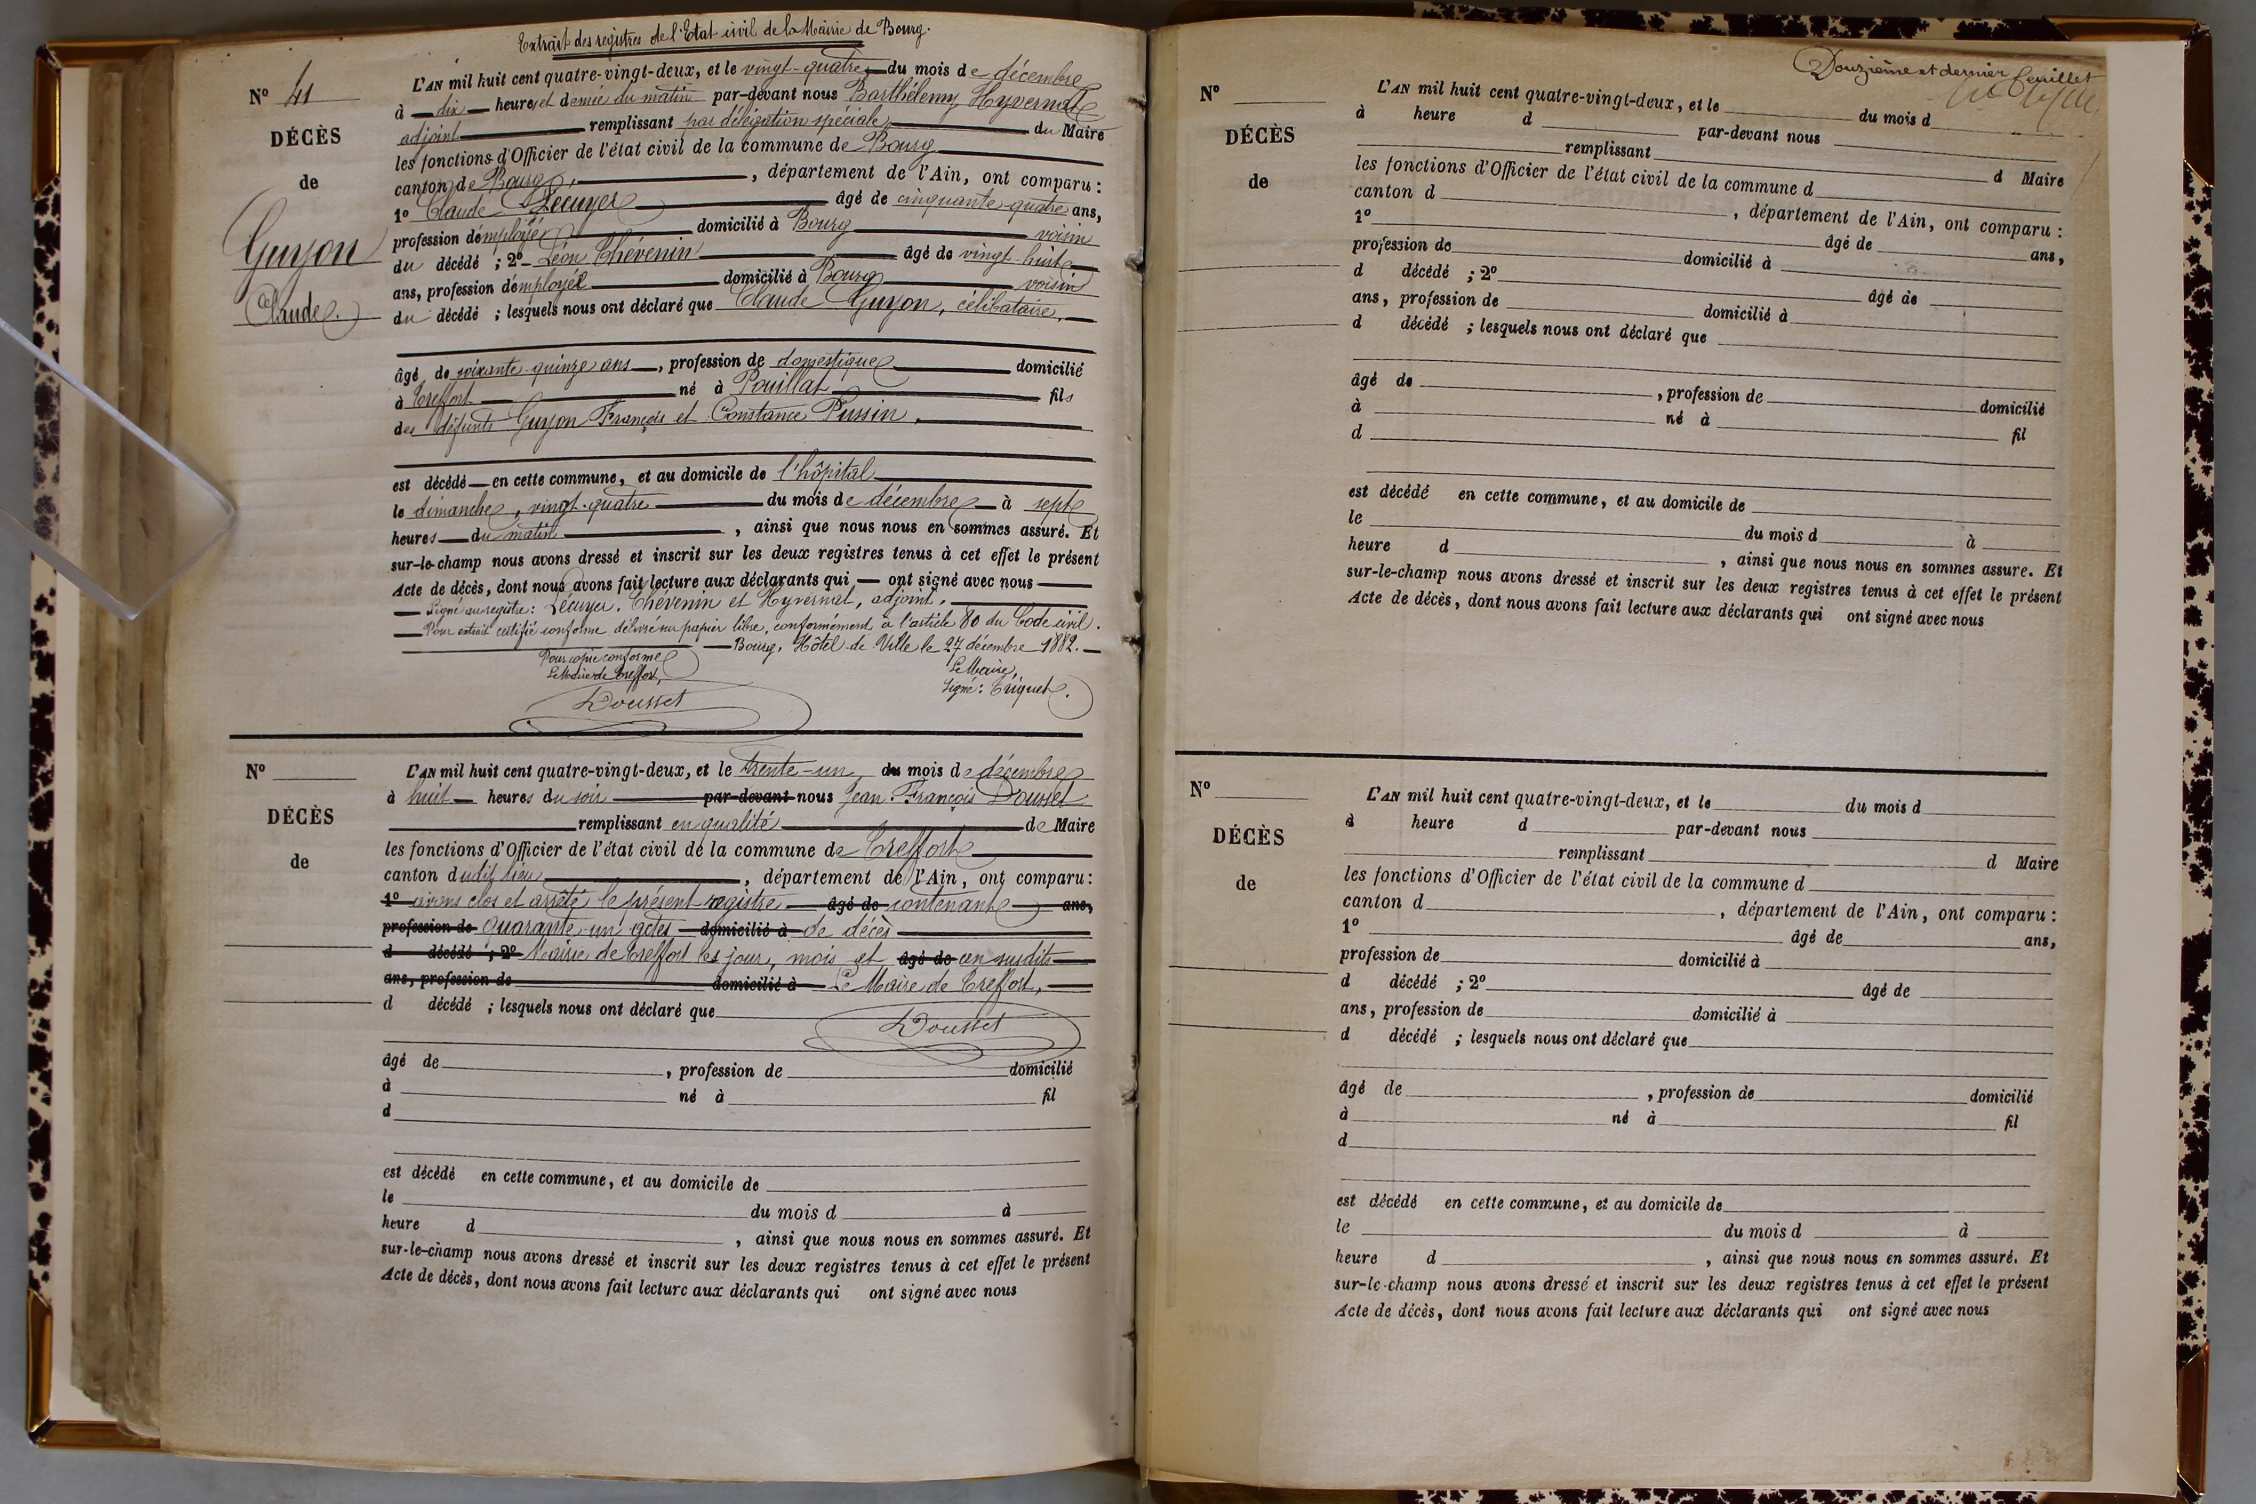 Extrait des registres de l'Etat civil de la Mairie de Bourg.
N° 41
DÉCÈS
de
Guyon
Claude.
L'AN mil huit cent quatre-vingt-deux, et le vingt-quatre du mois de décembre
à dix heures et demie du matin par-devant nous Barthélemy Hyvernat
adjoint remplissant par délégation spéciale du Maire
les fonctions d'Officier de l'état civil de la commune de Bourg
canton de Bourg, , département de l'Ain, ont comparu :
1° Claude Lécuyer âgé de cinquante-quatre ans,
profession d'employé domicilié à Bourg voisin
du décédé ; 2° Léon Thévenin âgé de vingt-huit
ans, profession d'employé domicilié à Bourg voisin
du décédé ; lesquels nous ont déclaré que Claude Guyon, célibataire,
âgé de soixante-quinze ans, profession de domestique domicilié
à Treffort né à Pouillat fils
des défunts Guyon François et Constance Pussin,
est décédé en cette commune, et au domicile de l'hôpital
le dimanche, vingt-quatre du mois de décembre à sept
heures du matin , ainsi que nous nous en sommes assuré. Et
sur-le-champ nous avons dressé et inscrit sur les deux registres tenus à cet effet le présent
Acte de décès, dont nous avons fait lecture aux déclarants qui ont signé avec nous
Signé au registre : Lécuyer, Thévenin et Hyvernat, adjoint.
Pour extrait certifié conforme délivré sur papier libre, conformément à l'article 80 du Code civil.
Bourg, Hôtel de Ville le 27 décembre 1882.
Pour copie conforme
Le Maire de Treffort,
Dousset
Le Maire,
Signé : Triquet.
N°
DÉCÈS
de
L'AN mil huit cent quatre-vingt-deux, et le trente-un du mois de décembre
à huit heures du soir par-devant nous Jean François Dousset
remplissant en qualité de Maire
les fonctions d'Officier de l'état civil de la commune de Treffort
canton dudit lieu , département de l'Ain, ont comparu :
1° avons clos et arrêté le présent registre âgé de contenant ans,
profession de quarante-un actes domicilié à de décès
d décédé ; 2° Mairie de Treffort les jour, mois et âgé de an susdits
ans, profession de domicilié à Le Maire de Treffort,
d décédé ; lesquels nous ont déclaré que
Dousset
âgé de , profession de domicilié
à né à fil
d
est décédé en cette commune, et au domicile de
le du mois d à
heure d , ainsi que nous nous en sommes assuré. Et
sur-le-champ nous avons dressé et inscrit sur les deux registres tenus à cet effet le présent
Acte de décès, dont nous avons fait lecture aux déclarants qui ont signé avec nous
Douzième et dernier feuillet
N°
DÉCÈS
de
L'AN mil huit cent quatre-vingt-deux, et le du mois d
à heure d par-devant nous
remplissant d Maire
les fonctions d'Officier de l'état civil de la commune d
canton d , département de l'Ain, ont comparu :
1° âgé de ans,
profession de domicilié à
d décédé ; 2° âgé de
ans, profession de domicilié à
d décédé ; lesquels nous ont déclaré que
âgé de , profession de domicilié
à né à fil
d
est décédé en cette commune, et au domicile de
le du mois d à
heure d , ainsi que nous nous en sommes assure. Et
sur-le-champ nous avons dressé et inscrit sur les deux registres tenus à cet effet le présent
Acte de décès, dont nous avons fait lecture aux déclarants qui ont signé avec nous
N°
DÉCÈS
de
L'AN mil huit cent quatre-vingt-deux, et le du mois d
à heure d par-devant nous
remplissant d Maire
les fonctions d'Officier de l'état civil de la commune d
canton d , département de l'Ain, ont comparu :
1° âgé de ans,
profession de domicilié à
d décédé ; 2° âgé de
ans, profession de domicilié à
d décédé ; lesquels nous ont déclaré que
âgé de , profession de domicilié
à né à fil
d
est décédé en cette commune, et au domicile de
le du mois d à
heure d , ainsi que nous nous en sommes assuré. Et
sur-le-champ nous avons dressé et inscrit sur les deux registres tenus à cet effet le présent
Acte de décès, dont nous avons fait lecture aux déclarants qui ont signé avec nous